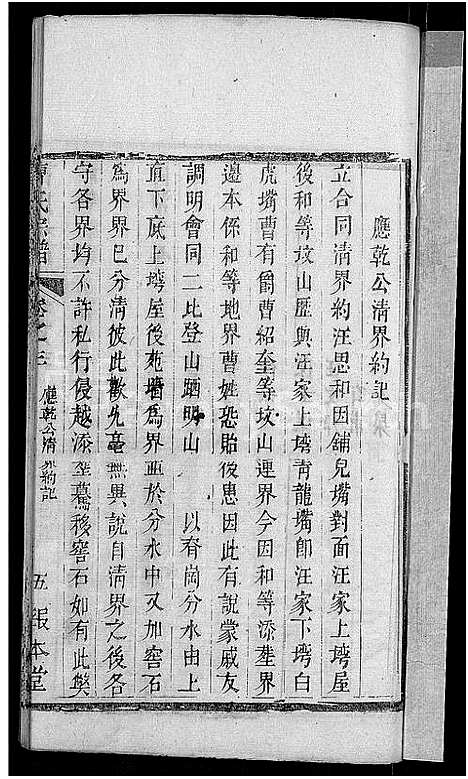 應乾公清界約記
立合同清界約汪思和因舖兒嘴對面汪家上塆屋
後和等坟山歷與汪家上塆青龍嘴卽汪家下塆白
虎嘴曹有爵曹紹奎等坟山連界今因和等添塟界
邊本係和等地界曹姓恐貽後患因此有說蒙戚友
調明會同二比登山踏明山 以脊崗分水由上
直下底上塆屋後 墻為界並於分水中又加窖石
為界界已分清彼此歡允毫無異說自清界之後各
守各界均不許私行侵越添塟騫移窖石如有此獘
氏宗譜
卷之三
應乾公清界約記
五
報本堂